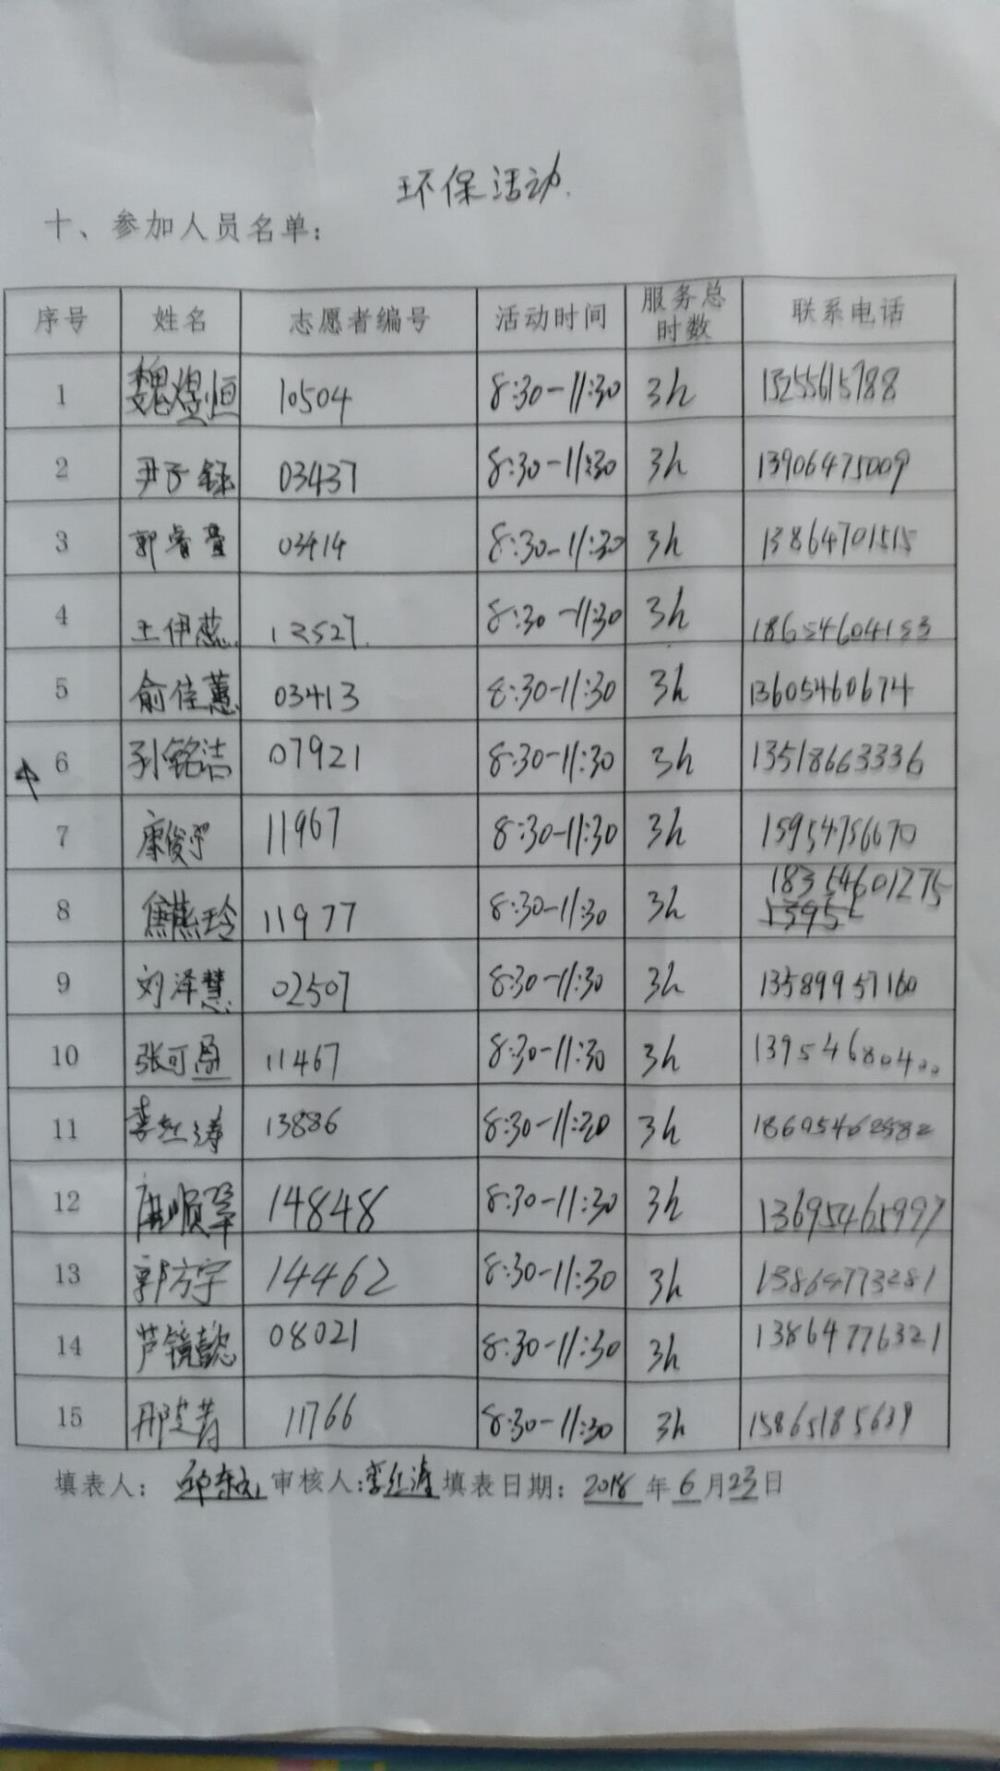 环保活动.
十、参加人员名单：
序号 姓名 志愿者编号 活动时间 服务总时数 联系电话
1 魏煜恒 10504 8:30-11:30 3h 13255615788
2 尹子 03437 8:30-11:30 3h 13906475009
3 郭睿萱 03414 8:30-11:30 3h 13864701515
4 王伊蕊 12527 8:30-11:30 3h 18654604153
5 俞佳蕙 03413 8:30-11:30 3h 13605460674
6 孙铭洁 07921 8:30-11:30 3h 13518663336
7 康俊宇 11967 8:30-11:30 3h 15954756670
8 焦燕玲 11977 8:30-11:30 3h 18354601275
9 刘泽慧 02507 8:30-11:30 3h 13589957160
10 张可盈 11467 8:30-11:30 3h 13954680400
11 李红涛 13886 8:30-11:30 3h 18605462982
12 顺 14848 8:30-11:30 3h 13695465997
13 郭方宇 14462 8:30-11:30 3h 13864773281
14 芦镜懿 08021 8:30-11:30 3h 13864776321
15 邢 11766 8:30-11:30 3h 15865185639
填表人： 邱东 审核人：李红涛 填表日期：2018 年 6 月 23 日